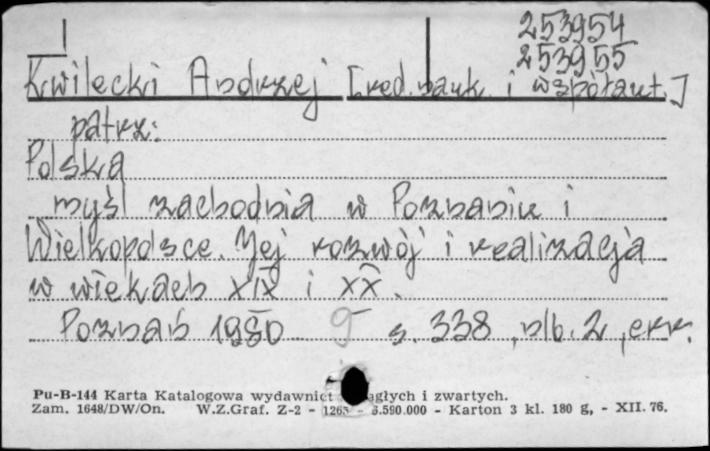 253954
253955
Kwilecki Andrzej [red. nauk. i współaut.]
patrz:
Polska
myśl zachodnia w Poznaniu i
Wielkopolsce. Jej rozwój i realizacja
w wiekach XIX i XX.
Poznań 1980 s. 338, nlb. 2, err.
Pu-B-144 Karta Katalogowa wydawnict ągłych i zwartych.
Zam. 1648/DW/On. W.Z.Graf. Z-2 - 1265 - 6.590.000 - Karton 3 kl. 180 g, - XII. 76.